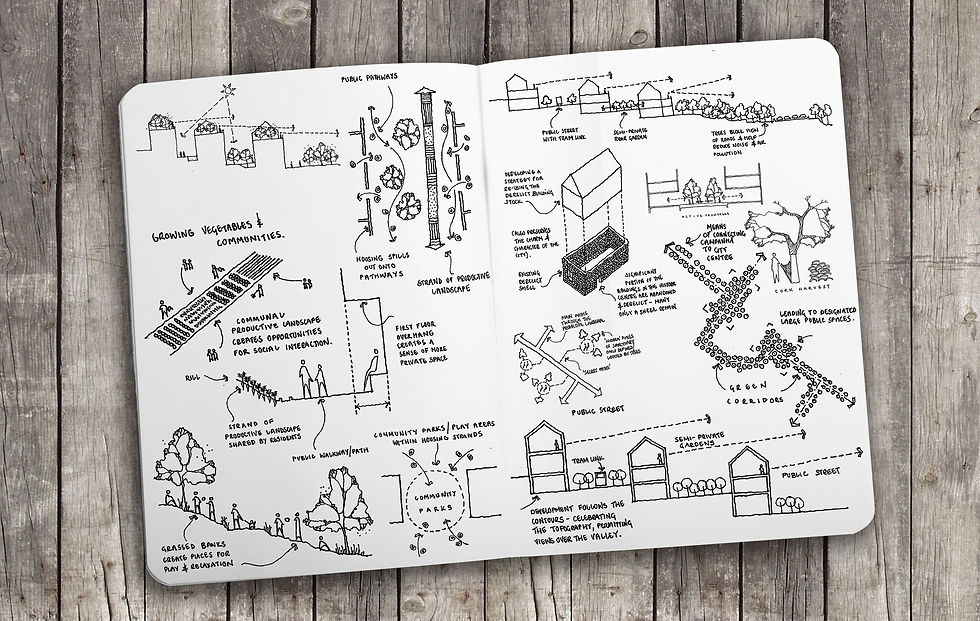 PUBLIC PATHWAYS
GROWING VEGETABLES &
COMMUNITIES.
HOUSING SPILLS
OUT ONTO
PATHWAYS
STRAND OF PRODUCTIVE
LANDSCAPE
COMMUNAL
PRODUCTIVE LANDSCAPE
CREATES OPPORTUNITIES
FOR SOCIAL INTERACTION.
FIRST FLOOR
OVERHANG
CREATES A
SENSE OF MORE
PRIVATE SPACE
RILL
STRAND OF
PRODUCTIVE LANDSCAPE
SHARED BY RESIDENTS
PUBLIC WALKWAY/PATH
COMMUNITY PARKS/PLAY AREAS
WITHIN HOUSING STRANDS
COMMUNITY
PARKS
GRASSED BANKS
CREATE PLACES FOR
PLAY & RELAXATION
PUBLIC STREET
WITH TRAM LINK
SEMI-PRIVATE
REAR GARDEN
TREES BLOCK VIEW
OF ROADS & HELP
REDUCE NOISE & AIR
POLLUTION
DEVELOPING A
STRATEGY FOR
RE-USING THE
DERELICT BUILDING
STOCK
(ALSO PRESERVES
THE CHARM &
CHARACTER OF THE
CITY).
EXISTING
DERELICT
SHELL
SIGNIFICANT
PORTION OF THE
BUILDINGS IN THE HISTORIC
CENTRE ARE ABANDONED
& DERELICT - MANY
ONLY A SHELL REMAIN
MEANS
OF CONNECTING
TO CITY
CENTRE
CORK HARVEST
LEADING TO DESIGNATED
LARGE PUBLIC SPACES.
GREEN
CORRIDORS
MAIN AXES
THROUGH THE
'HIDDEN' PLACES
OF SANCTUARY
'SECRET PATHS'
PUBLIC STREET
TRAM LINK
SEMI-PRIVATE
GARDENS
PUBLIC STREET
DEVELOPMENT FOLLOWS THE
CONTOURS - CELEBRATING
THE TOPOGRAPHY, PERMITTING
VIEWS OVER THE VALLEY.